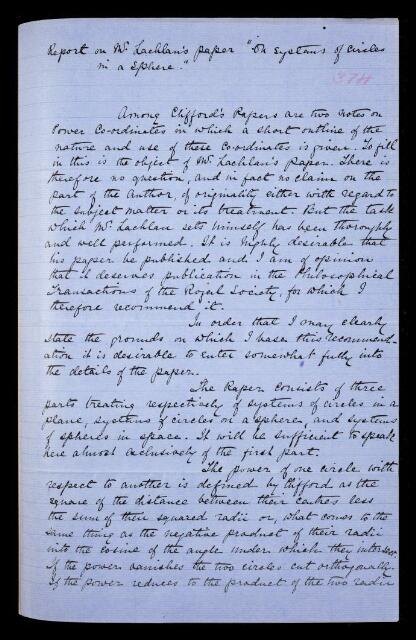 Report on Mr Lachlan's paper "On systems of circles
in a Sphere."
374
Among Clifford's Papers are two notes on
Power Co-ordinates in which a short outline of the
nature and use of these Co-ordinates is given. To fill
in this is the object of Mr Lachlan's Paper. There is
therefore no question, and in fact no claim on the
part of the Author, of originality either with regard to
the subject matter or its treatment. But the task
which Mr Lachlan sets himself has been thoroughly
and well performed. It is highly desirable that
his paper be published and I am of opinion
that it deserves publication in the Philosophical
Transactions of the Royal Society, for which I
therefore recommend it.
In order that I may clearly
state the grounds on which I base this recommend-
ation it is desirable to enter somewhat fully into
the details of the paper.
The Paper consists of three
parts treating respectively of systems of circles in a
plane, systems of circles on a sphere, and systems
of spheres in space. It will be sufficient to speak
here almost exclusively of the first part.
The power of one circle with
respect to another is defined by Clifford as the
square of the distance between their centres less
the sum of their squared radii or, what comes to the
same thing as the negative product of their radii
into the cosine of the angle under which they intersect.
If the power vanishes the two circles cut orthogonally.
If the power reduces to the product of the two radii